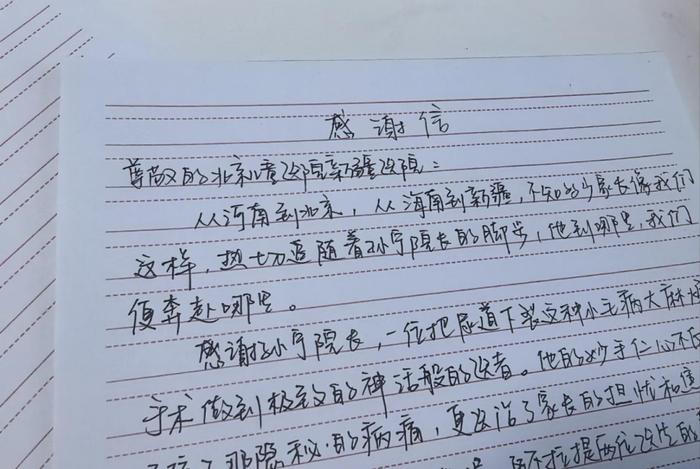 感谢信
尊敬的北京儿童医院新疆医院：
从河南到北京，从海南到新疆，不知多少家长像我们
这样，热切追随着孙宁院长的脚步，他到哪里，我们
便奔赴哪里。
感谢孙宁院长，一位把尿道下裂这种小毛病大麻烦
手术做到极致的神话般的医者。他的妙手仁心不仅
那隐秘的病痛，更医治了家长的担忧和
两位